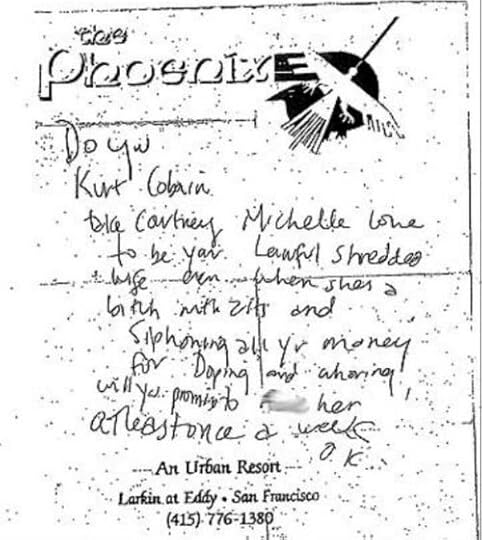 the
Phoenix
Do you
Kurt Cobain
take Cortney Michelle Love
to be your Lawful shredded
wife even when shes a
bitch with zits and
siphoning all yr money
for Doping and whoring
will you promise to her
atleast once a week
O K
An Urban Resort
Larkin at Eddy • San Francisco
(415) 776-1380